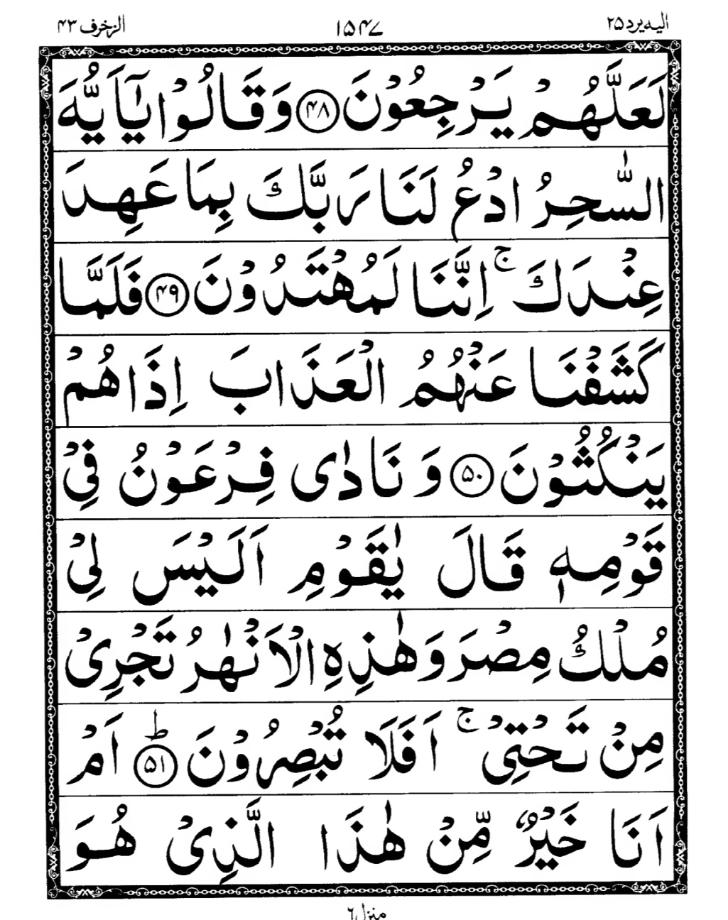 الیه یرد ۲۵ ۱۵۴۷ الزخرف ۴۳
لَعَلَّهُمْ يَرْجِعُوْنَ ﴿۴۸﴾ وَقَالُوْا يٰۤاَيُّهَ
السّٰحِرُ ادْعُ لَنَا رَبَّكَ بِمَا عَهِدَ
عِنْدَكَ ۚ اِنَّنَا لَمُهْتَدُوْنَ ﴿۴۹﴾ فَلَمَّا
كَشَفْنَا عَنْهُمُ الْعَذَابَ اِذَا هُمْ
يَنْكُثُوْنَ ﴿۵۰﴾ وَ نَادٰى فِرْعَوْنُ فِيْ
قَوْمِهٖ قَالَ يٰقَوْمِ اَلَيْسَ لِيْ
مُلْكُ مِصْرَ وَهٰذِهِ الْاَنْهٰرُ تَجْرِيْ
مِنْ تَحْتِيْ ۚ اَفَلَا تُبْصِرُوْنَ ؕ﴿۵۱﴾ اَمْ
اَنَا خَيْرٌ مِّنْ هٰذَا الَّذِيْ هُوَ
منزل ۶